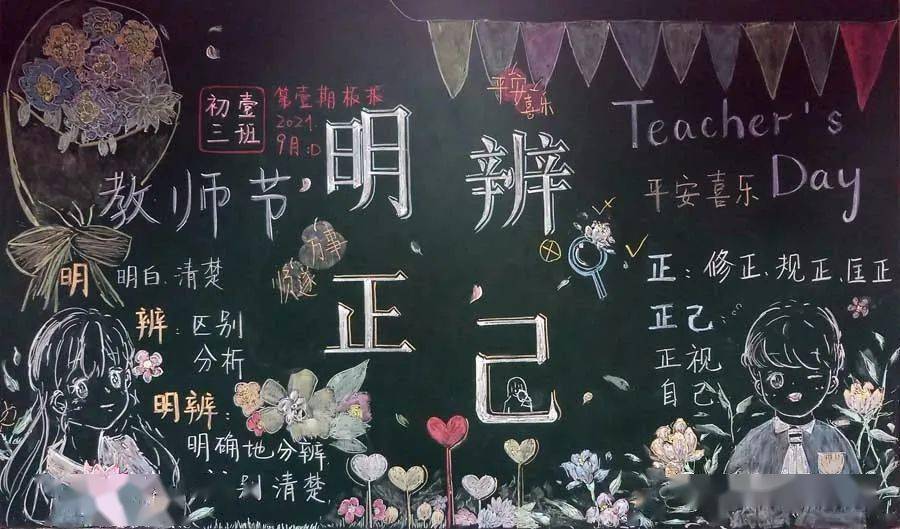 初壹
三班
第壹期板报
2021.
9月:D
平安
喜乐
Teacher's
Day
平安喜乐
教师节,
明辨
正己
万事
顺遂
明 明白.清楚
辨:区别
分析
明辨:
明确地分辨
别清楚.
正:修正.规正.匡正
正己
正视
自己